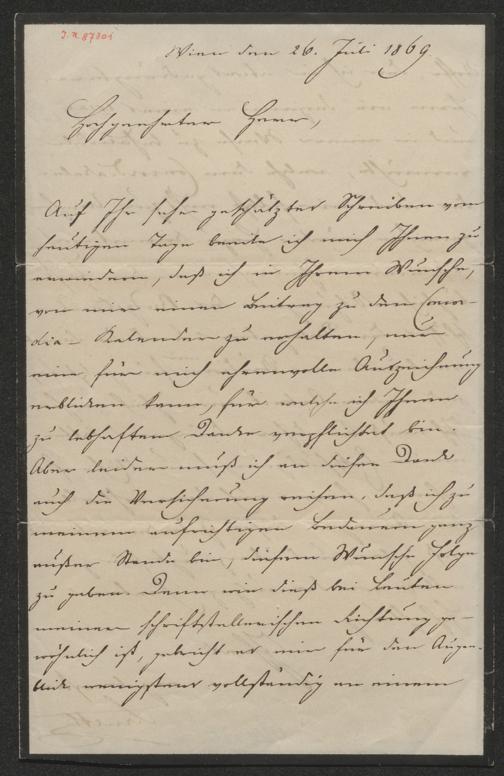 J.N. 87801
Wien den 26. Juli 1869
Hochgeehrter Herr,
Auf Ihr sehr geschätztes Schreiben vom
heutigen Tage beeile ich mich Ihnen zu
erwiedern, daß ich in Ihrem Wunsche,
von mir einen Beitrag zu dem Concor-
dia-Kalender zu erhalten, nur
eine für mich ehrenvolle Auszeichnung
erblicken kann, für welche ich Ihnen
zu lebhaftem Danke verpflichtet bin.
Aber leider muß ich an diesen Dank
auch die Versicherung reihen, daß ich zu
meinem aufrichtigen Bedauern ganz
außer Stande bin, diesem Wunsche Folge
zu geben. Denn wie dieß bei Leuten
meiner schriftstellerischen Richtung ge-
wöhnlich ist, gebricht es mir für den Augen-
blick wenigstens vollständig an einem